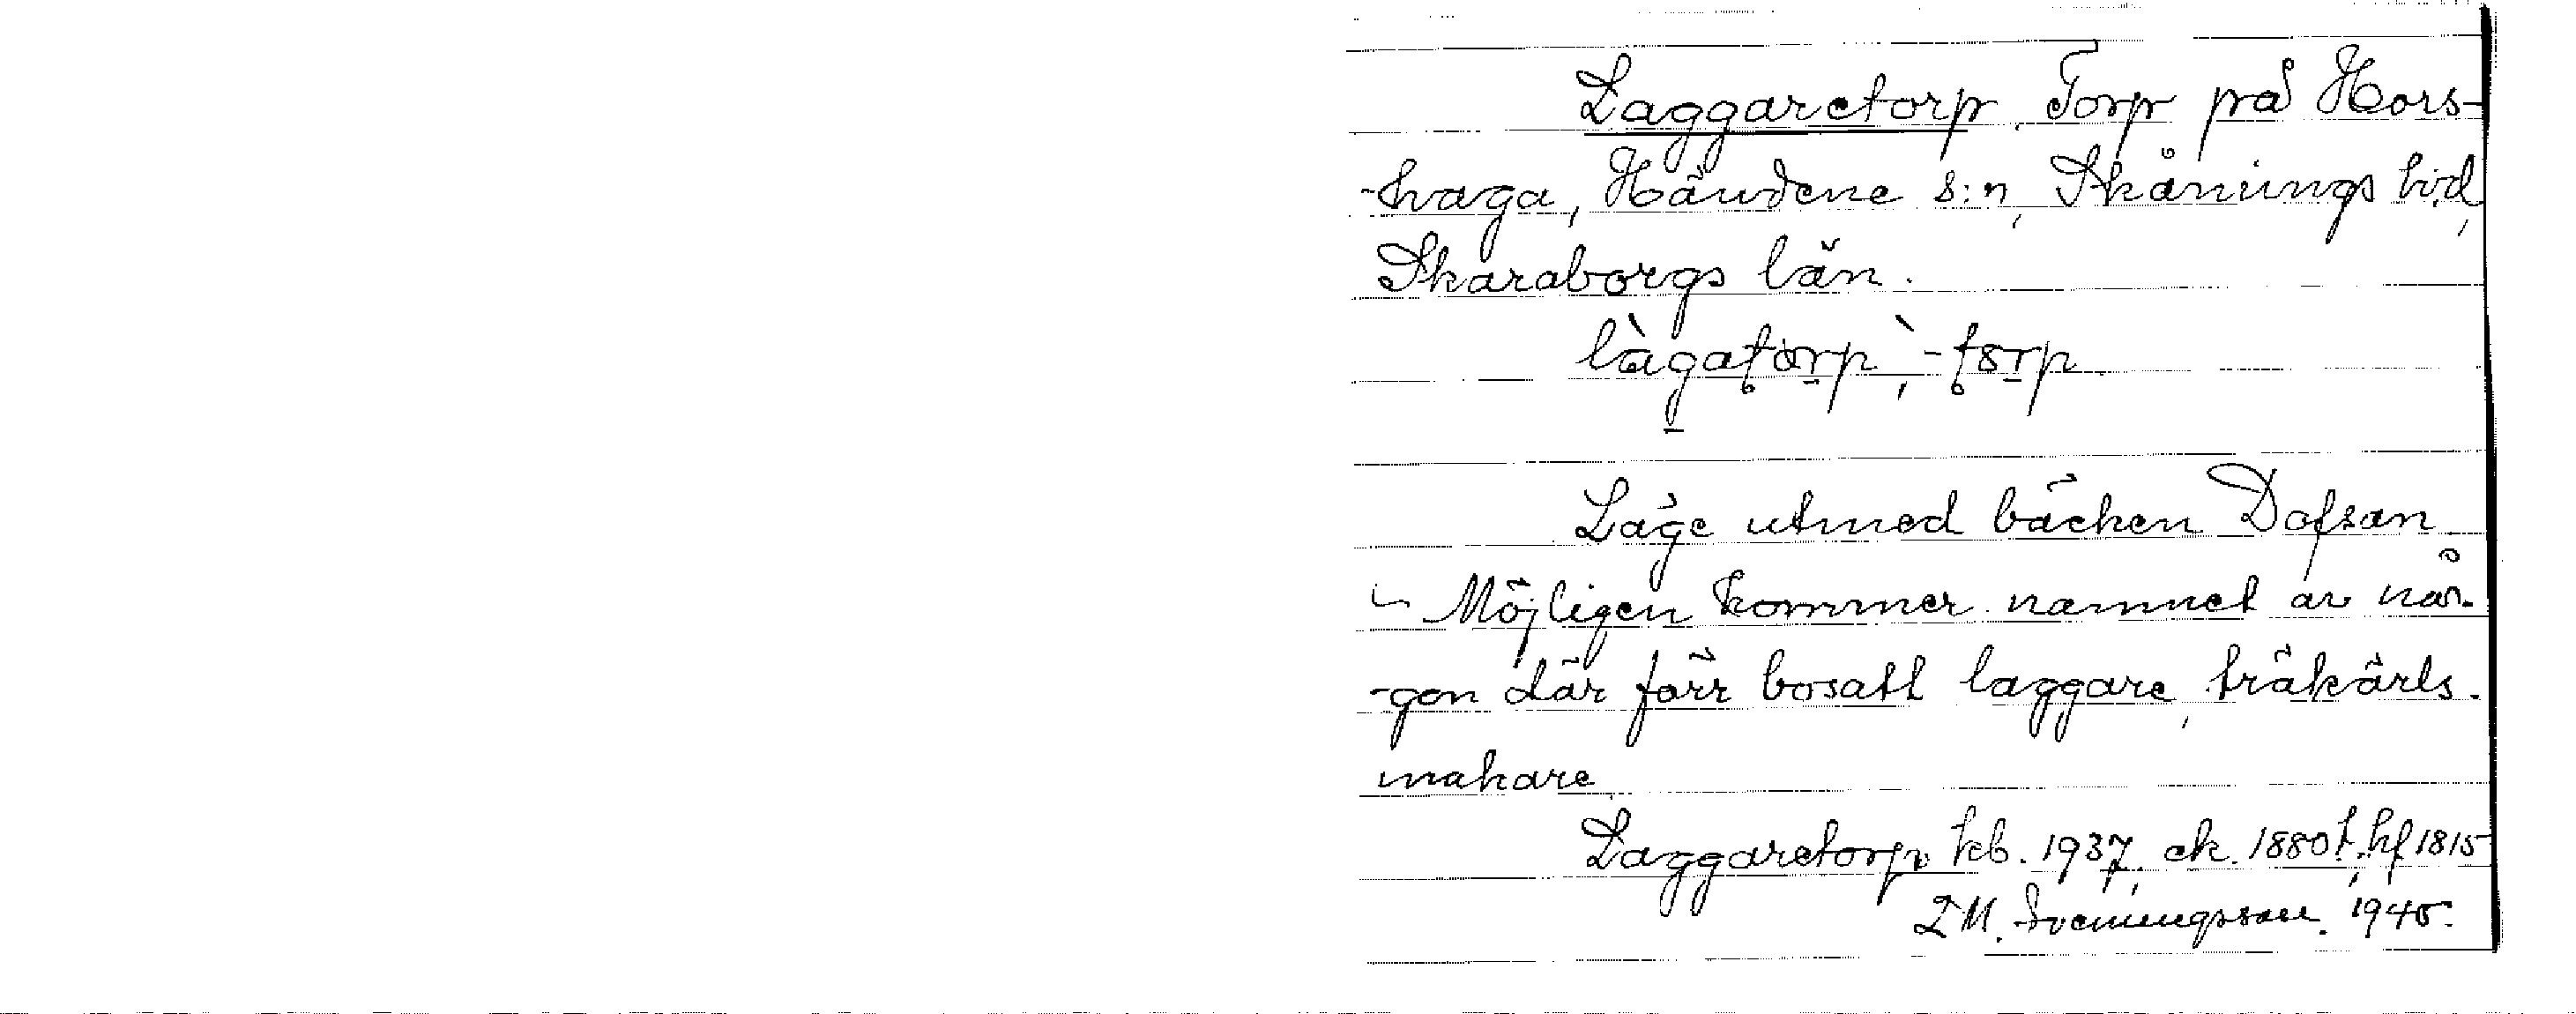 Laggaretorp, Torp på Hors-
-haga, Händene s:n, Skånings hd,
Skaraborgs län.
làgatòrp, -tɞrp.
Läge utmed bäcken Dofsan.
Möjligen kommer namnet av nå-
-gon där förr bosatt laggare, träkärls-
makare.
Laggaretorp kb. 1937, ek. 1880t, hf 1815
L M. Svenungsson. 1945.